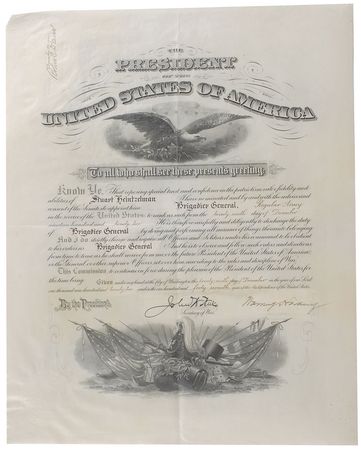 THE
PRESIDENT
OF THE
UNITED STATES OF AMERICA
To all who shall see these presents greeting:
Know Ye, That reposing special trust and confidence in the patriotism, valor, fidelity and
abilities of Stuart Heintzelman I have nominated and by and with the advice and
consent of the Senate do appoint him Brigadier General, Regular Army
in the service of the United States: to rank as such from the day of December
nineteen hundred and He is therefore carefully and diligently to discharge the duty
of Brigadier General by doing and performing all manner of things thereunto belonging.
And I do strictly charge and require all Officers and Soldiers under his command to be obedient
to his orders as Brigadier General And he is to observe and follow such orders and directions
from time to time as he shall receive from me or the future President of the United States of America,
or the General or other superior Officers set over him, according to the rules and discipline of War.
This Commission to continue in force during the pleasure of the President of the United States for
the time being.
Given under my hand at the City of Washington this day of December in the year of our Lord
one thousand nine hundred and and in the one hundred and forty seventh year of the Independence of the United States.
By the President:
Secretary of War.
Warren G Harding